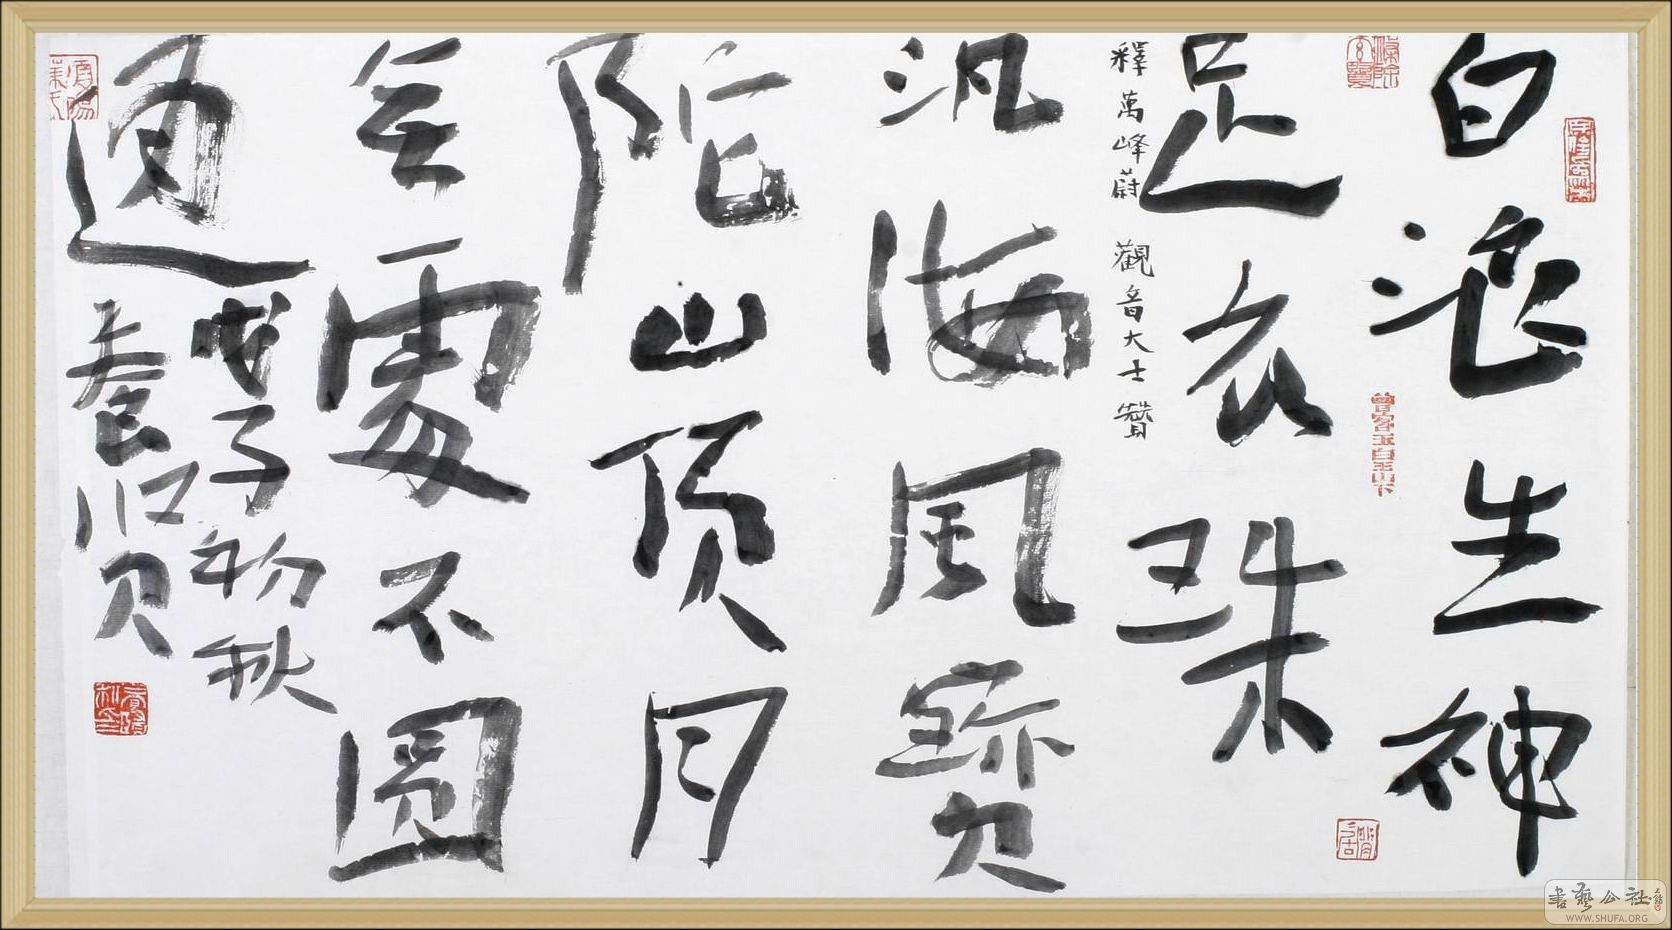 白浪生神
足衣珠
釋萬峰蔚 觀音大士贊
汎海風寶
陀山頂月
無處不圓
通
戊子初秋
書藝公社
WWW.SHUFA.ORG